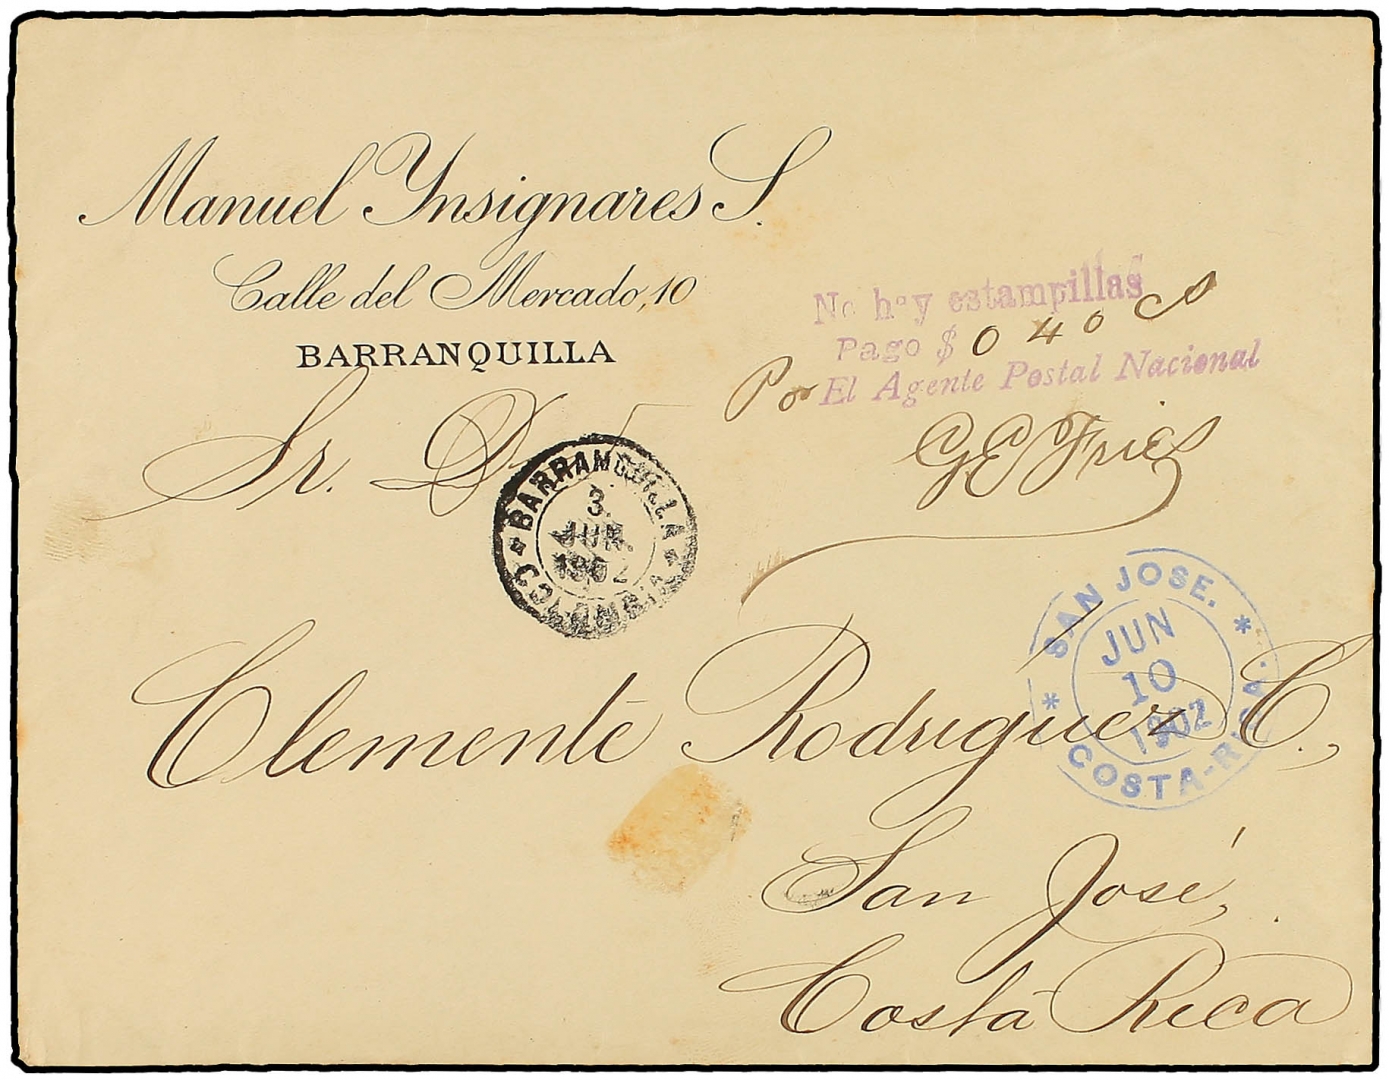 Manuel Ynsignares S.
Calle del Mercado, 10
BARRANQUILLA
No hay estampillas
Pago $ 0 40 cs
Por El Agente Postal Nacional
G E Fries
Sr. Dn
BARRANQUILLA
3.
JUN.
1902
COLOMBIA
SAN JOSE.
JUN
10
1902
COSTA-RICA.
Clemente Rodriguez C.,
San José,
Costa Rica